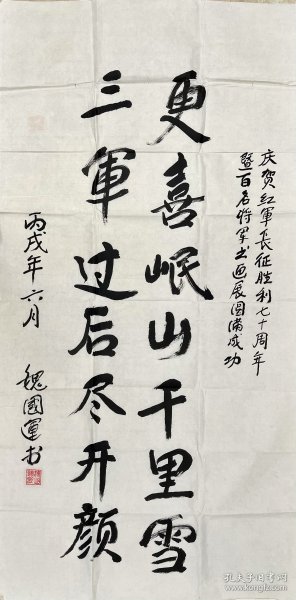 庆贺红軍長征胜利七十周年
暨百名将军书画展圆满成功
更喜岷山千里雪
三軍过后尽开颜
丙戌年六月
魏國運书
孔夫子旧书网